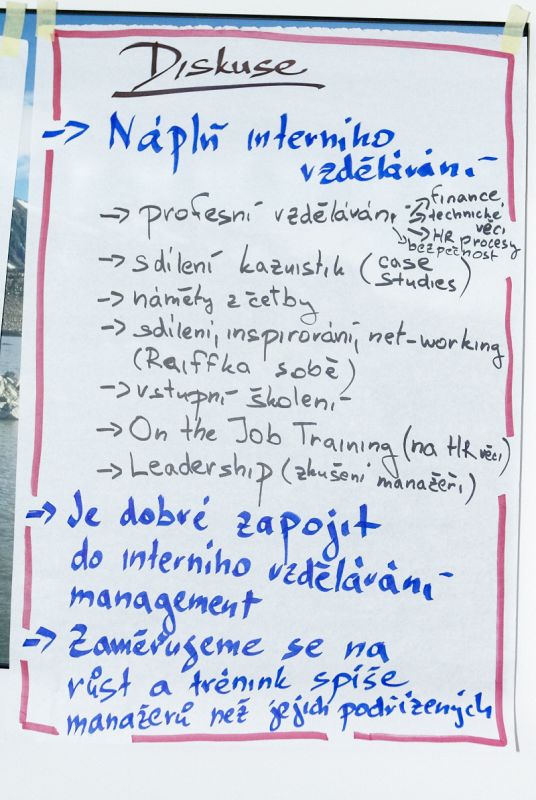 Diskuse
→ Náplň interního
vzdělávání
→ profesní vzdělávání → finance,
→ technické
věci
→ HR procesy
→ bezpečnost
→ sdílení kazuistik (case
studies)
→ náměty z četby
→ sdílení, inspirování, net-working
(Raiffka sobě)
→ vstupní školení
→ On the Job Training (na HR věci)
→ Leadership (zkušení manažéři)
→ Je dobré zapojit
do interního vzdělávání
management
→ Zaměřujeme se na
růst a trénink spíše
manažerů než jejich podřízených